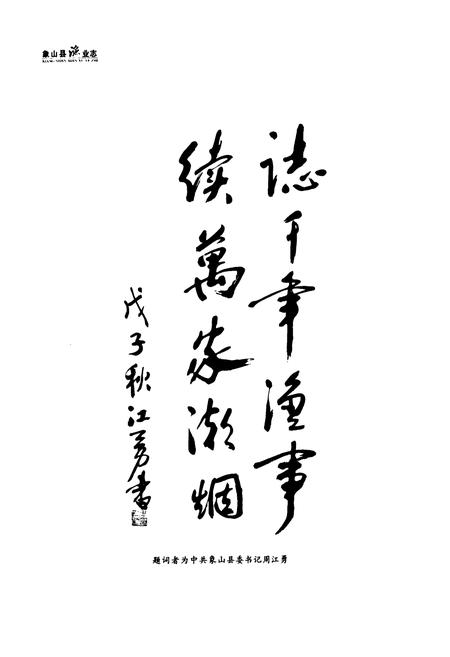 象山县渔业志
XIANG SHAN XIAN YU YE ZHI
誌千年渔事
续萬家潮烟
戊子秋江勇书
题词者为中共象山县委书记周江勇